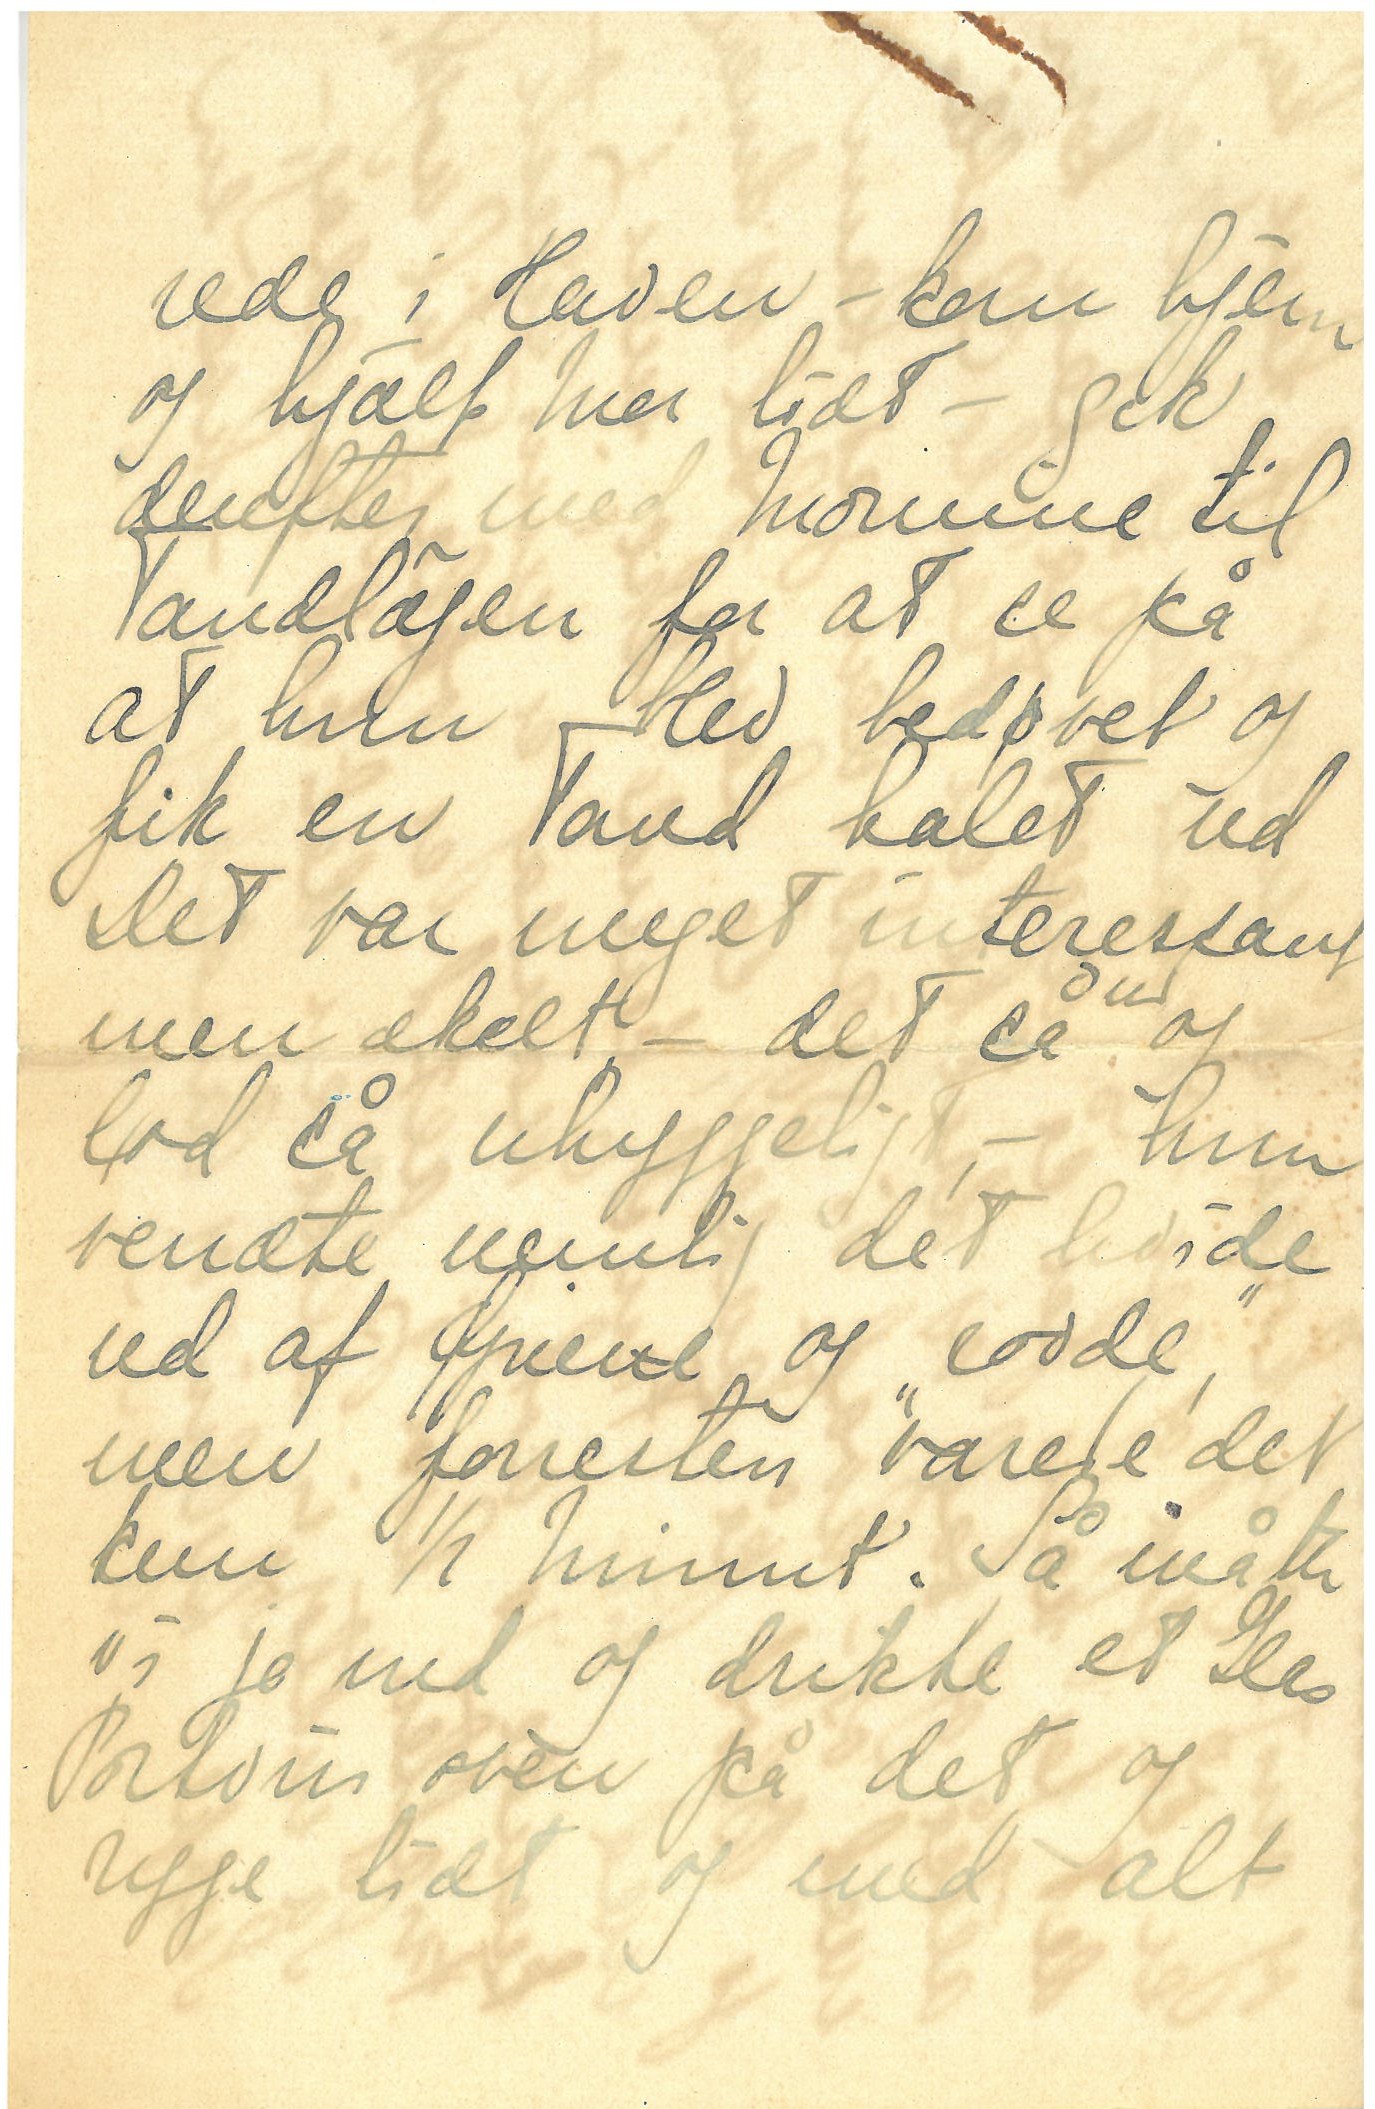 nede i Haven – kom hjem
og hjalf Mor lidt – gik
derefter med Mornine til
Tandlägen for at se på
at hun blev bedøvet og
fik en Tand halet ud
Det var meget interessant
men ækelt – det så ond og
lod så uhyggeligt, – hun
vendte nemlig det hvide
ud af Øjnene og „sovde"
men forresten varede det
kun 1/2 Minut. Så måtte
vi jo ned og drikke et Glas
Portvin oven på det og
ryge lidt og med alt